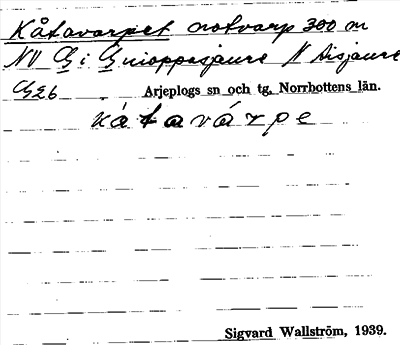 Kåtavarpet notvarp 300 m
NV G i Guioppasjaure N Aisjaure
G26 Arjeplogs sn och tg, Norrbottens län.
kátavárpe
Sigvard Wallström, 1939.